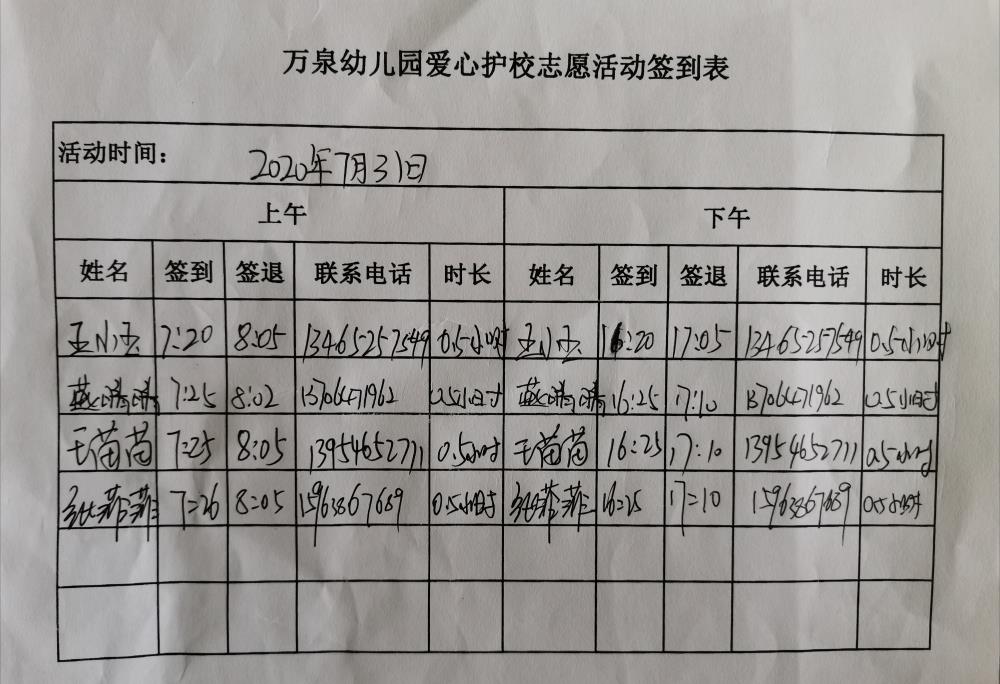 万泉幼儿园爱心护校志愿活动签到表
活动时间: 2020年7月31日
上午 下午
姓名 签到 签退 联系电话 时长 姓名 签到 签退 联系电话 时长
王小玉 7:20 8:05 13465257549 0.5小时 王小玉 16:20 17:05 13465257549 0.5小时
燕晴晴 7:25 8:02 13706471962 0.5小时 燕晴晴 16:25 17:10 13706471962 0.5小时
王苗苗 7:25 8:05 13954652711 0.5小时 王苗苗 16:25 17:10 13954652711 0.5小时
菲菲 7:26 8:05 15963867689 0.5小时 菲菲 16:25 17:10 15963867689 0.5小时